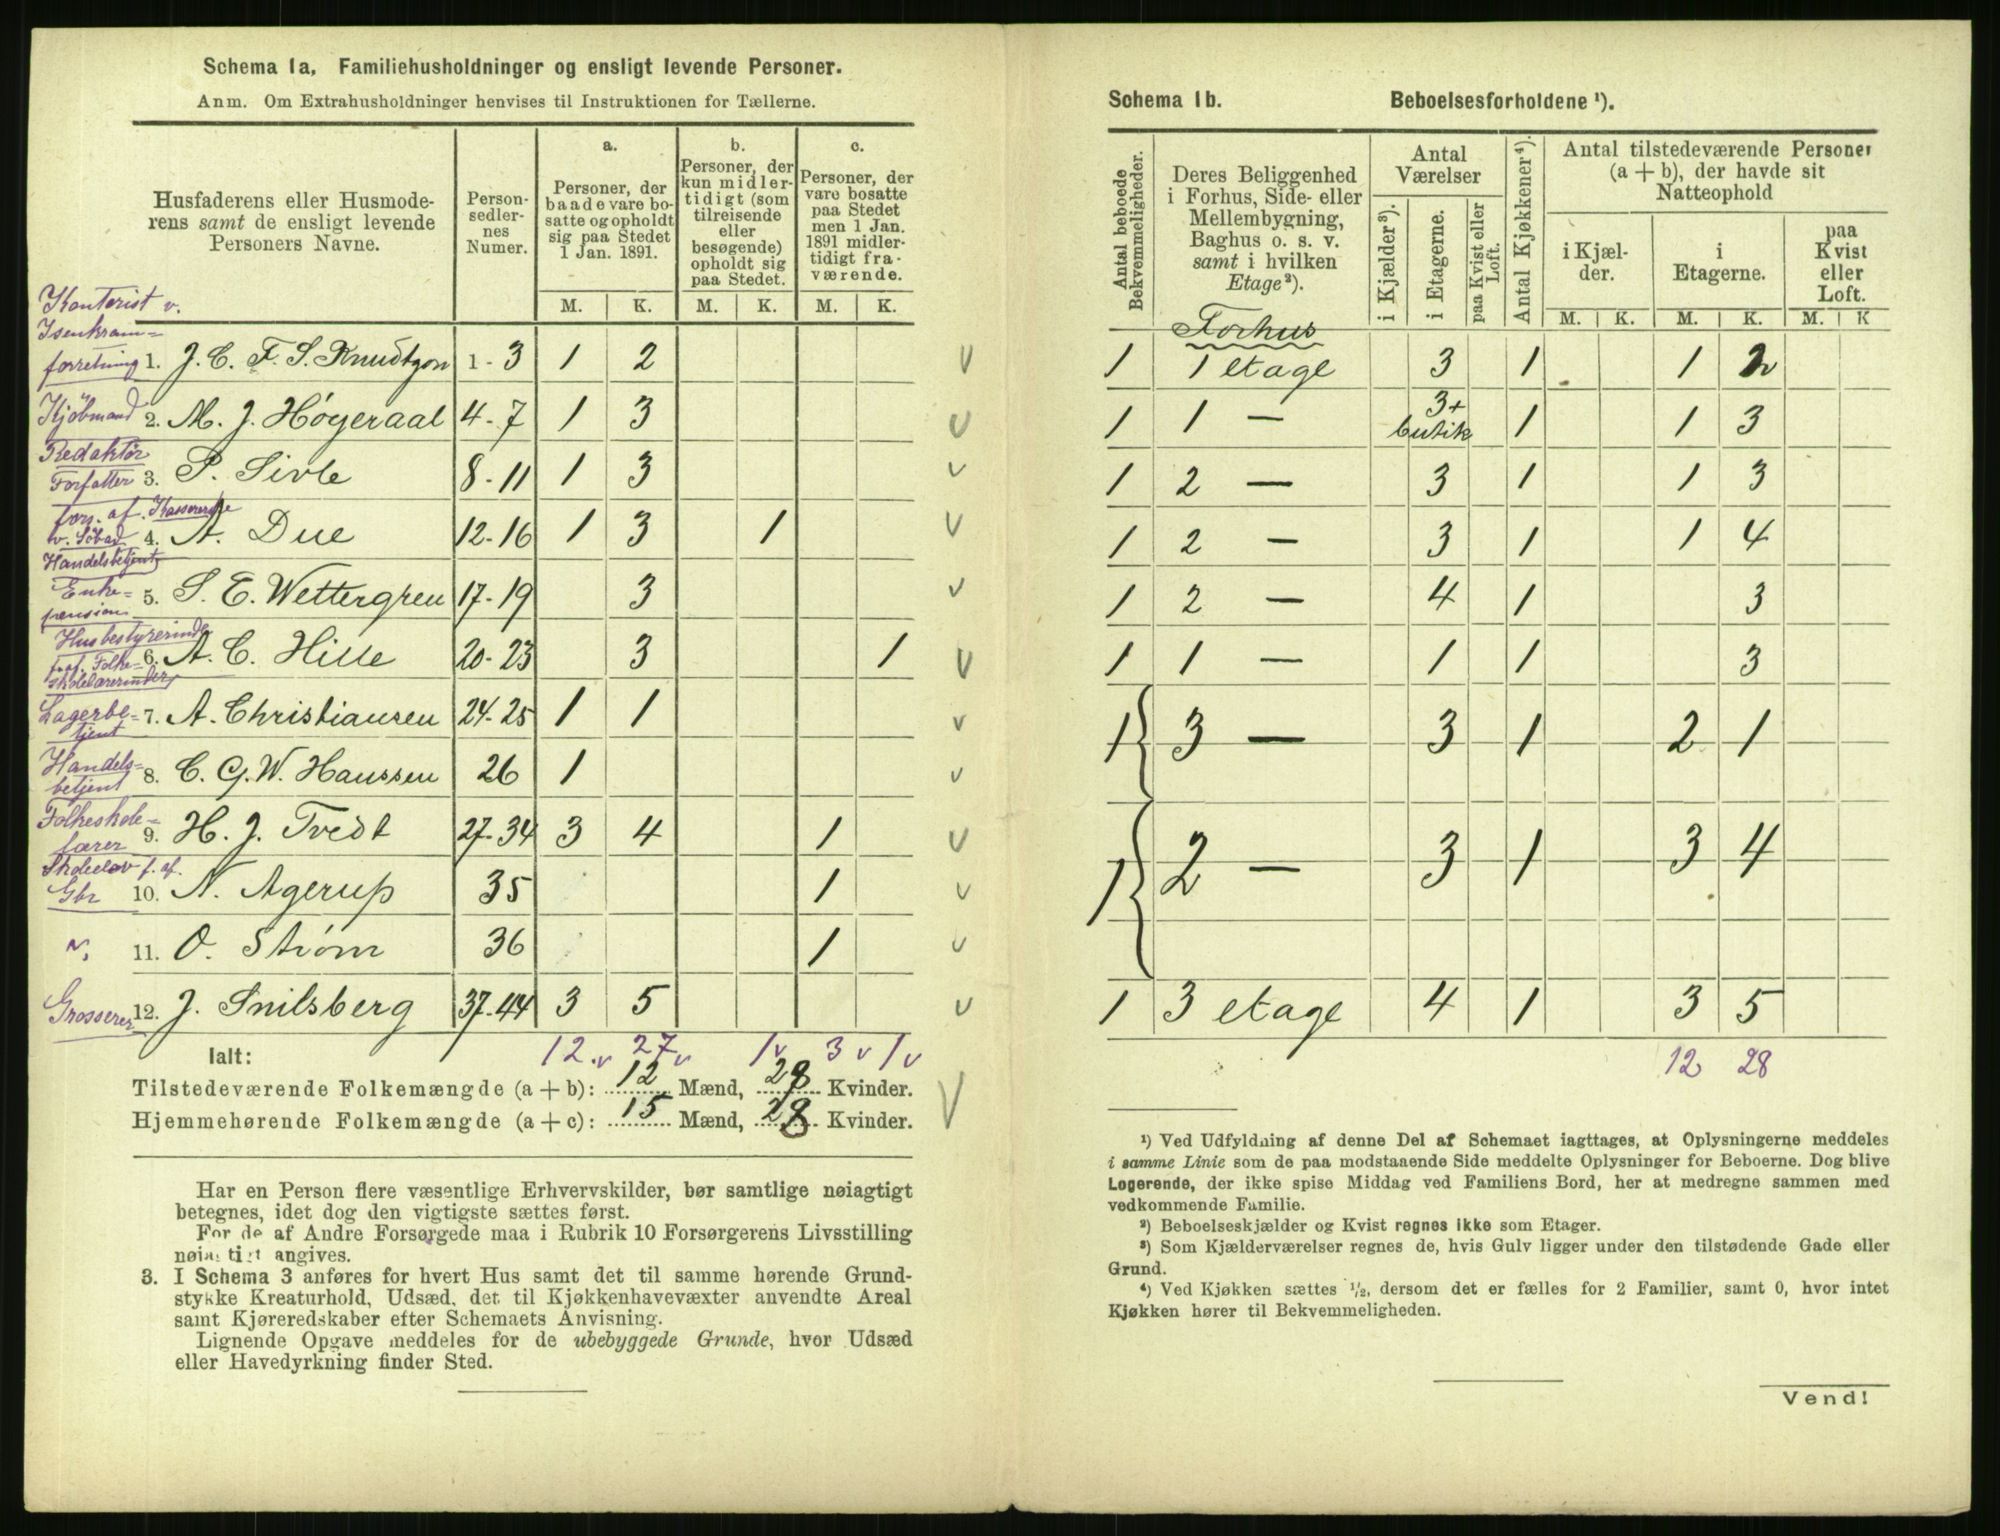 Schema 1a, Familiehusholdninger og ensligt levende Personer.
Anm. Om Extrahusholdninger henvises til Instruktionen for Tællerne.
Husfaderens eller Husmoderens samt de ensligt levende Personers Navne.
Personsedlernes Numer.
a.
Personer, der baade vare bosatte og opholdt sig paa Stedet 1 Jan. 1891.
b.
Personer, der kun midlertidigt (som tilreisende eller besøgende) opholdt sig paa Stedet.
c.
Personer, der vare bosatte paa Stedet men 1 Jan. 1891 midlertidigt fraværende.
M. K. M. K. M. K.
Kontorist v. Isenkramforretning 1. J. C. F. S. Knudtzon 1-3 1 2 v
Kjøbmand 2. M. J. Høyeraal 4-7 1 3 v
Redaktør Forfatter 3. P. Sivle 8-11 1 3 v
fors. af. Kassererske v. Søbad Handelsbetjent 4. A. Due 12-16 1 3 1 v
Enkepension 5. S. E. Wettergren 17-19 3 v
Husbestyrerinde f. af. Folkeskolelærerinder 6. A. C. Hille 20-23 3 1 v
Lagerbetjent 7. A. Christiansen 24-25 1 1 v
Handelsbetjent 8. C. G. W. Hanssen 26 1 v
Folkeskolelærer 9. H. J. Tvedt 27-34 3 4 1 v
Skoleelev f. af. Gbr 10. N. Agerup 35 1 v
11. O. Strøm 36 1 v
Grosserer 12. J. Snilsberg 37-44 3 5 v
Ialt: 12 v 27 v 1 v 3 v 1 v
Tilstedeværende Folkemængde (a + b): 12 Mænd, 28 Kvinder.
Hjemmehørende Folkemængde (a + c): 15 Mænd, 28 Kvinder.
Har en Person flere væsentlige Erhvervskilder, bør samtlige nøiagtigt
betegnes, idet dog den vigtigste sættes først.
For de af Andre Forsørgede maa i Rubrik 10 Forsørgerens Livsstilling
nøiagtigt angives.
3. I Schema 3 anføres for hvert Hus samt det til samme hørende Grund-
stykke Kreaturhold, Udsæd, det til Kjøkkenhavevæxter anvendte Areal
samt Kjøreredskaber efter Schemaets Anvisning.
Lignende Opgave meddeles for de ubebyggede Grunde, hvor Udsæd
eller Havedyrkning finder Sted.
Schema 1b. Beboelsesforholdene ¹).
Antal beboede Bekvemmeligheder.
Deres Beliggenhed i Forhus, Side- eller Mellembygning, Baghus o. s. v. samt i hvilken Etage²).
Antal Værelser
i Kjælder³).
i Etagerne.
paa Kvist eller Loft.
Antal Kjøkkener⁴).
Antal tilstedeværende Personer (a + b), der havde sit Natteophold
i Kjælder.
i Etagerne.
paa Kvist eller Loft.
M. K. M. K. M. K
Forhus
1 1 etage 3 1 1 2
1 1 — 3 + butik 1 1 3
1 2 — 3 1 1 3
1 2 — 3 1 1 4
1 2 — 4 1 3
1 1 — 1 1 3
1 3 — 3 1 2 1
1 2 — 3 1 3 4
1 3 etage 4 1 3 5
12 28
¹) Ved Udfyldning af denne Del af Schemaet iagttages, at Oplysningerne meddeles
i samme Linie som de paa modstaaende Side meddelte Oplysninger for Beboerne. Dog blive
Logerende, der ikke spise Middag ved Familiens Bord, her at medregne sammen med
vedkommende Familie.
²) Beboelseskjælder og Kvist regnes ikke som Etager.
³) Som Kjælderværelser regnes de, hvis Gulv ligger under den tilstødende Gade eller
Grund.
⁴) Ved Kjøkken sættes ½, dersom det er fælles for 2 Familier, samt 0, hvor intet
Kjøkken hører til Bekvemmeligheden.
Vend!